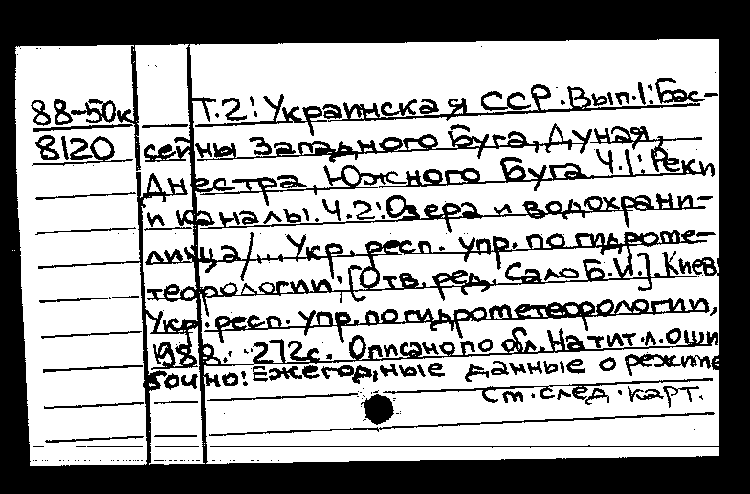 88-50к Т.2: Украинская ССР. Вып.1: Бас-
8120 сейны Западного Буга, Дуная,
Днестра, Южного Буга Ч.1: Реки
и каналы. Ч.2: Озера и водохрани-
лища /... Укр. респ. упр. по гидроме-
теорологии; [Отв. ред. Сало Б.И.]. Киев:
Укр. респ. упр. по гидрометеорологии,
1982. - 272с. Описано по обл. На тит. л. оши
бочно: Ежегодные данные о режиме
см. след. карт.